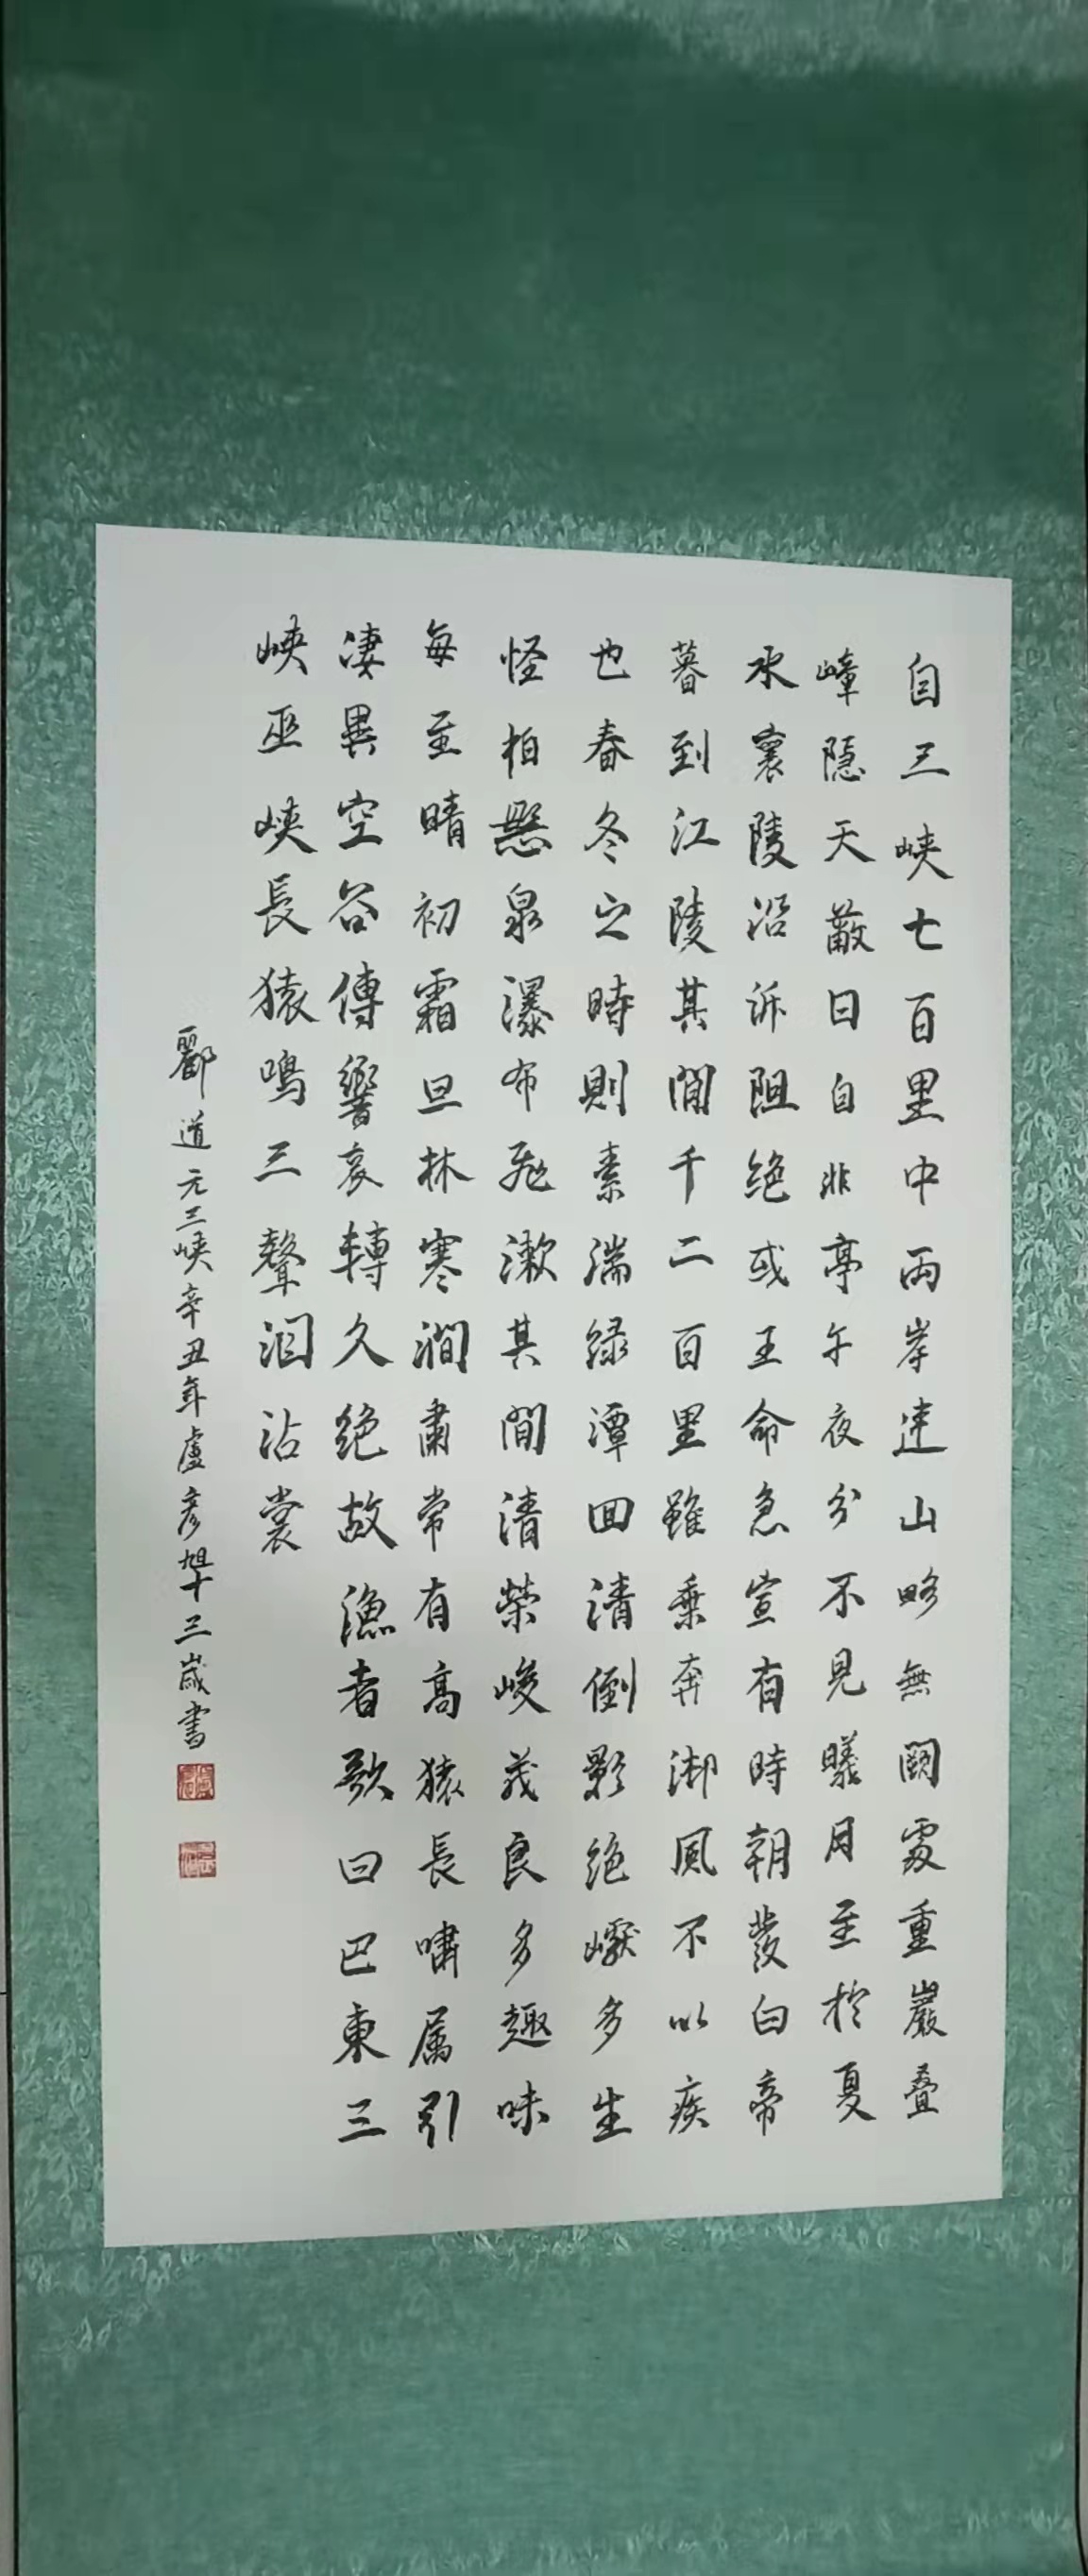 自三峽七百里中兩岸連山略無闕處重巖疊
嶂隱天蔽日自非亭午夜分不見曦月至於夏
水襄陵沿訴阻絕或王命急宣有時朝發白帝
暮到江陵其間千二百里雖乘奔御風不以疾
也春冬之時則素湍綠潭回清倒影絕巘多生
怪柏懸泉瀑布飛漱其間清榮峻茂良多趣味
每至晴初霜旦林寒澗肅常有高猿長嘯屬引
淒異空谷傳響哀轉久絕故漁者歌曰巴東三
峽巫峽長猿鳴三聲淚沾裳
酈道元三峽辛丑年盧彥旭十三歲書